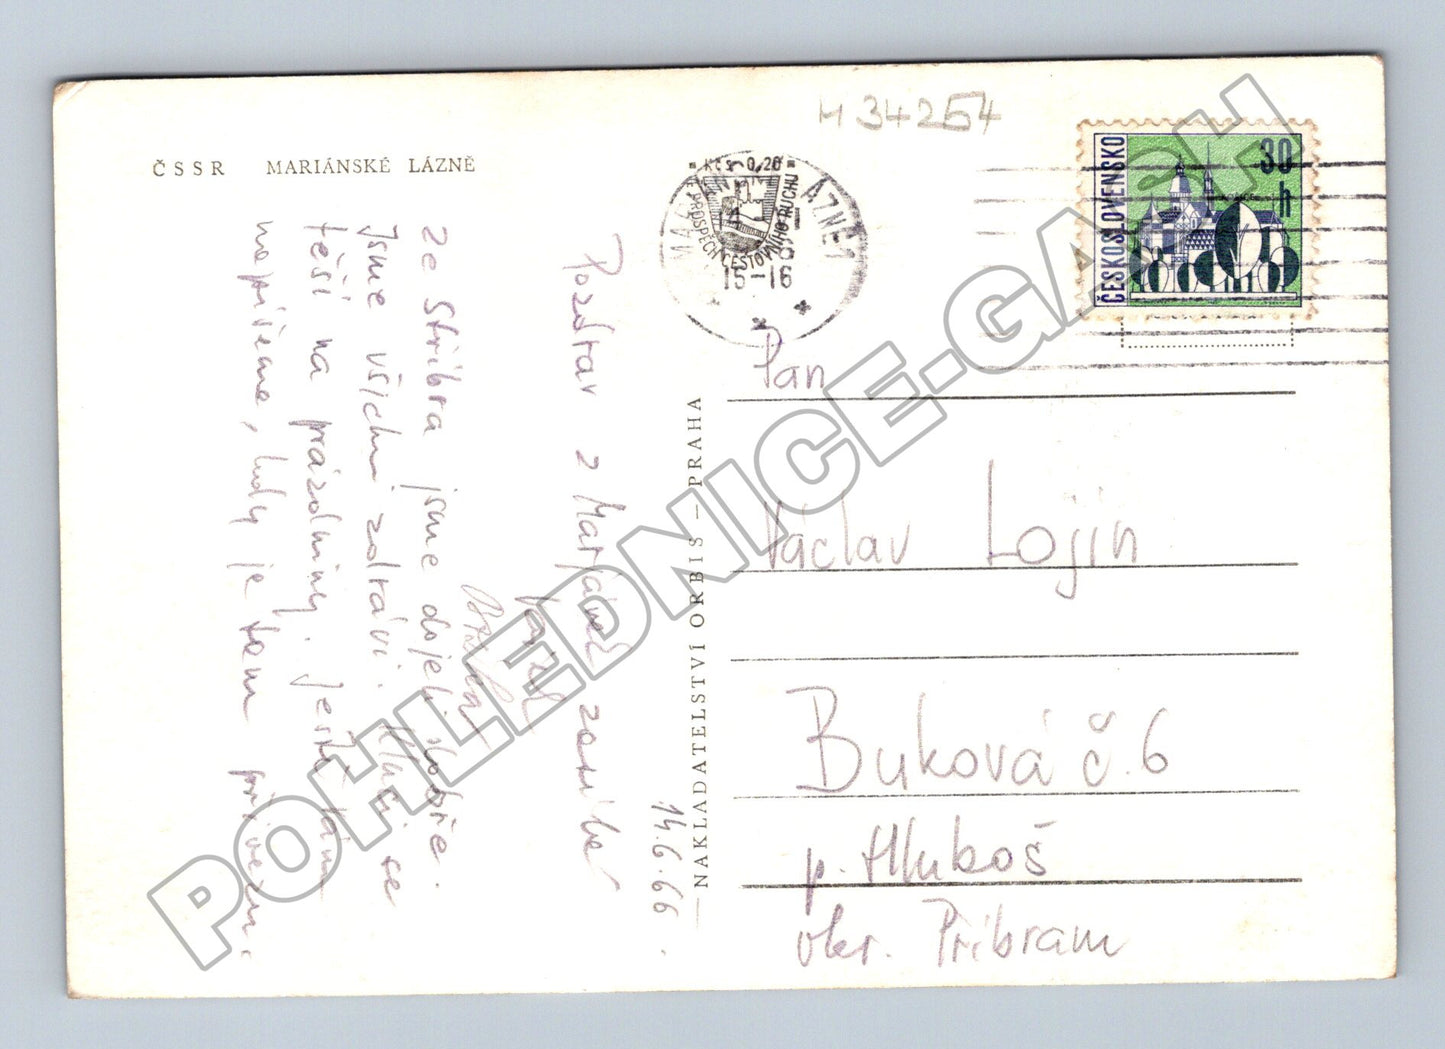 M 34254
ČSSR MARIÁNSKÉ LÁZNĚ
Kčs 0,20
PROSPĚCH CESTOVNÍHO RUCHU
MARIÁNSKÉ LÁZNĚ 1
15-16
ČESKOSLOVENSKO
30 h
Pozdrav z Mariánek zasílá
14.6.66.
ze Stříbra jsme dojeli dobře.
Jsme všichni zdrávi. Kluci se
těší na prázdniny. Ještě tam
nepíšeme, kdy je tam přivezem.
NAKLADATELSTVÍ ORBIS – PRAHA
Pan
Václav Lojín
Buková č.6
p. Hluboš
okr. Příbram
POHLEDNICE-GASH